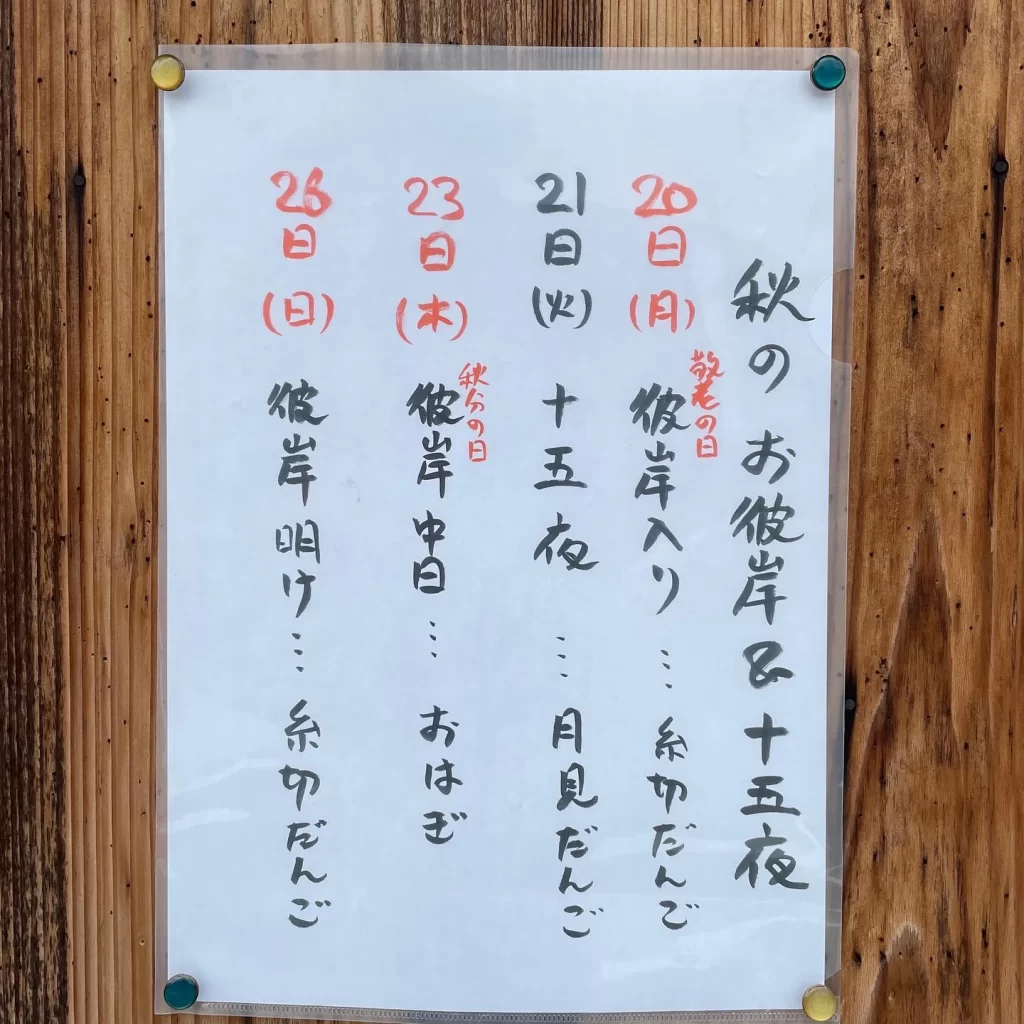 秋のお彼岸&十五夜
20日(月)彼岸入り…糸切だんご
敬老の日
21日(火)十五夜…月見だんご
23日(木)彼岸中日…おはぎ
秋分の日
26日(日)彼岸明け…糸切だんご